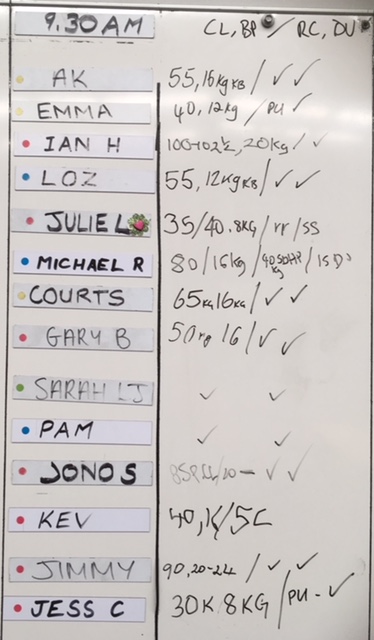 9.30AM CL, BP / RC, DU
AK 55, 16kg KB / ✓ ✓
EMMA 40, 12kg / PU ✓
IAN H 20kg / ✓
LOZ 55, 12kg KB / ✓ ✓
JULIE L 35/40. 8KG / rr / ss
MICHAEL R 80 / 16kg /
COURTS 65kg 16kg / ✓ ✓
GARY B 50kg 16 / ✓ ✓
SARAH LJ ✓ ✓
PAM ✓ ✓
JONO S ✓ ✓
KEV
JIMMY 90, 20-24 / ✓ ✓
JESS C 30K 8KG / PU - ✓